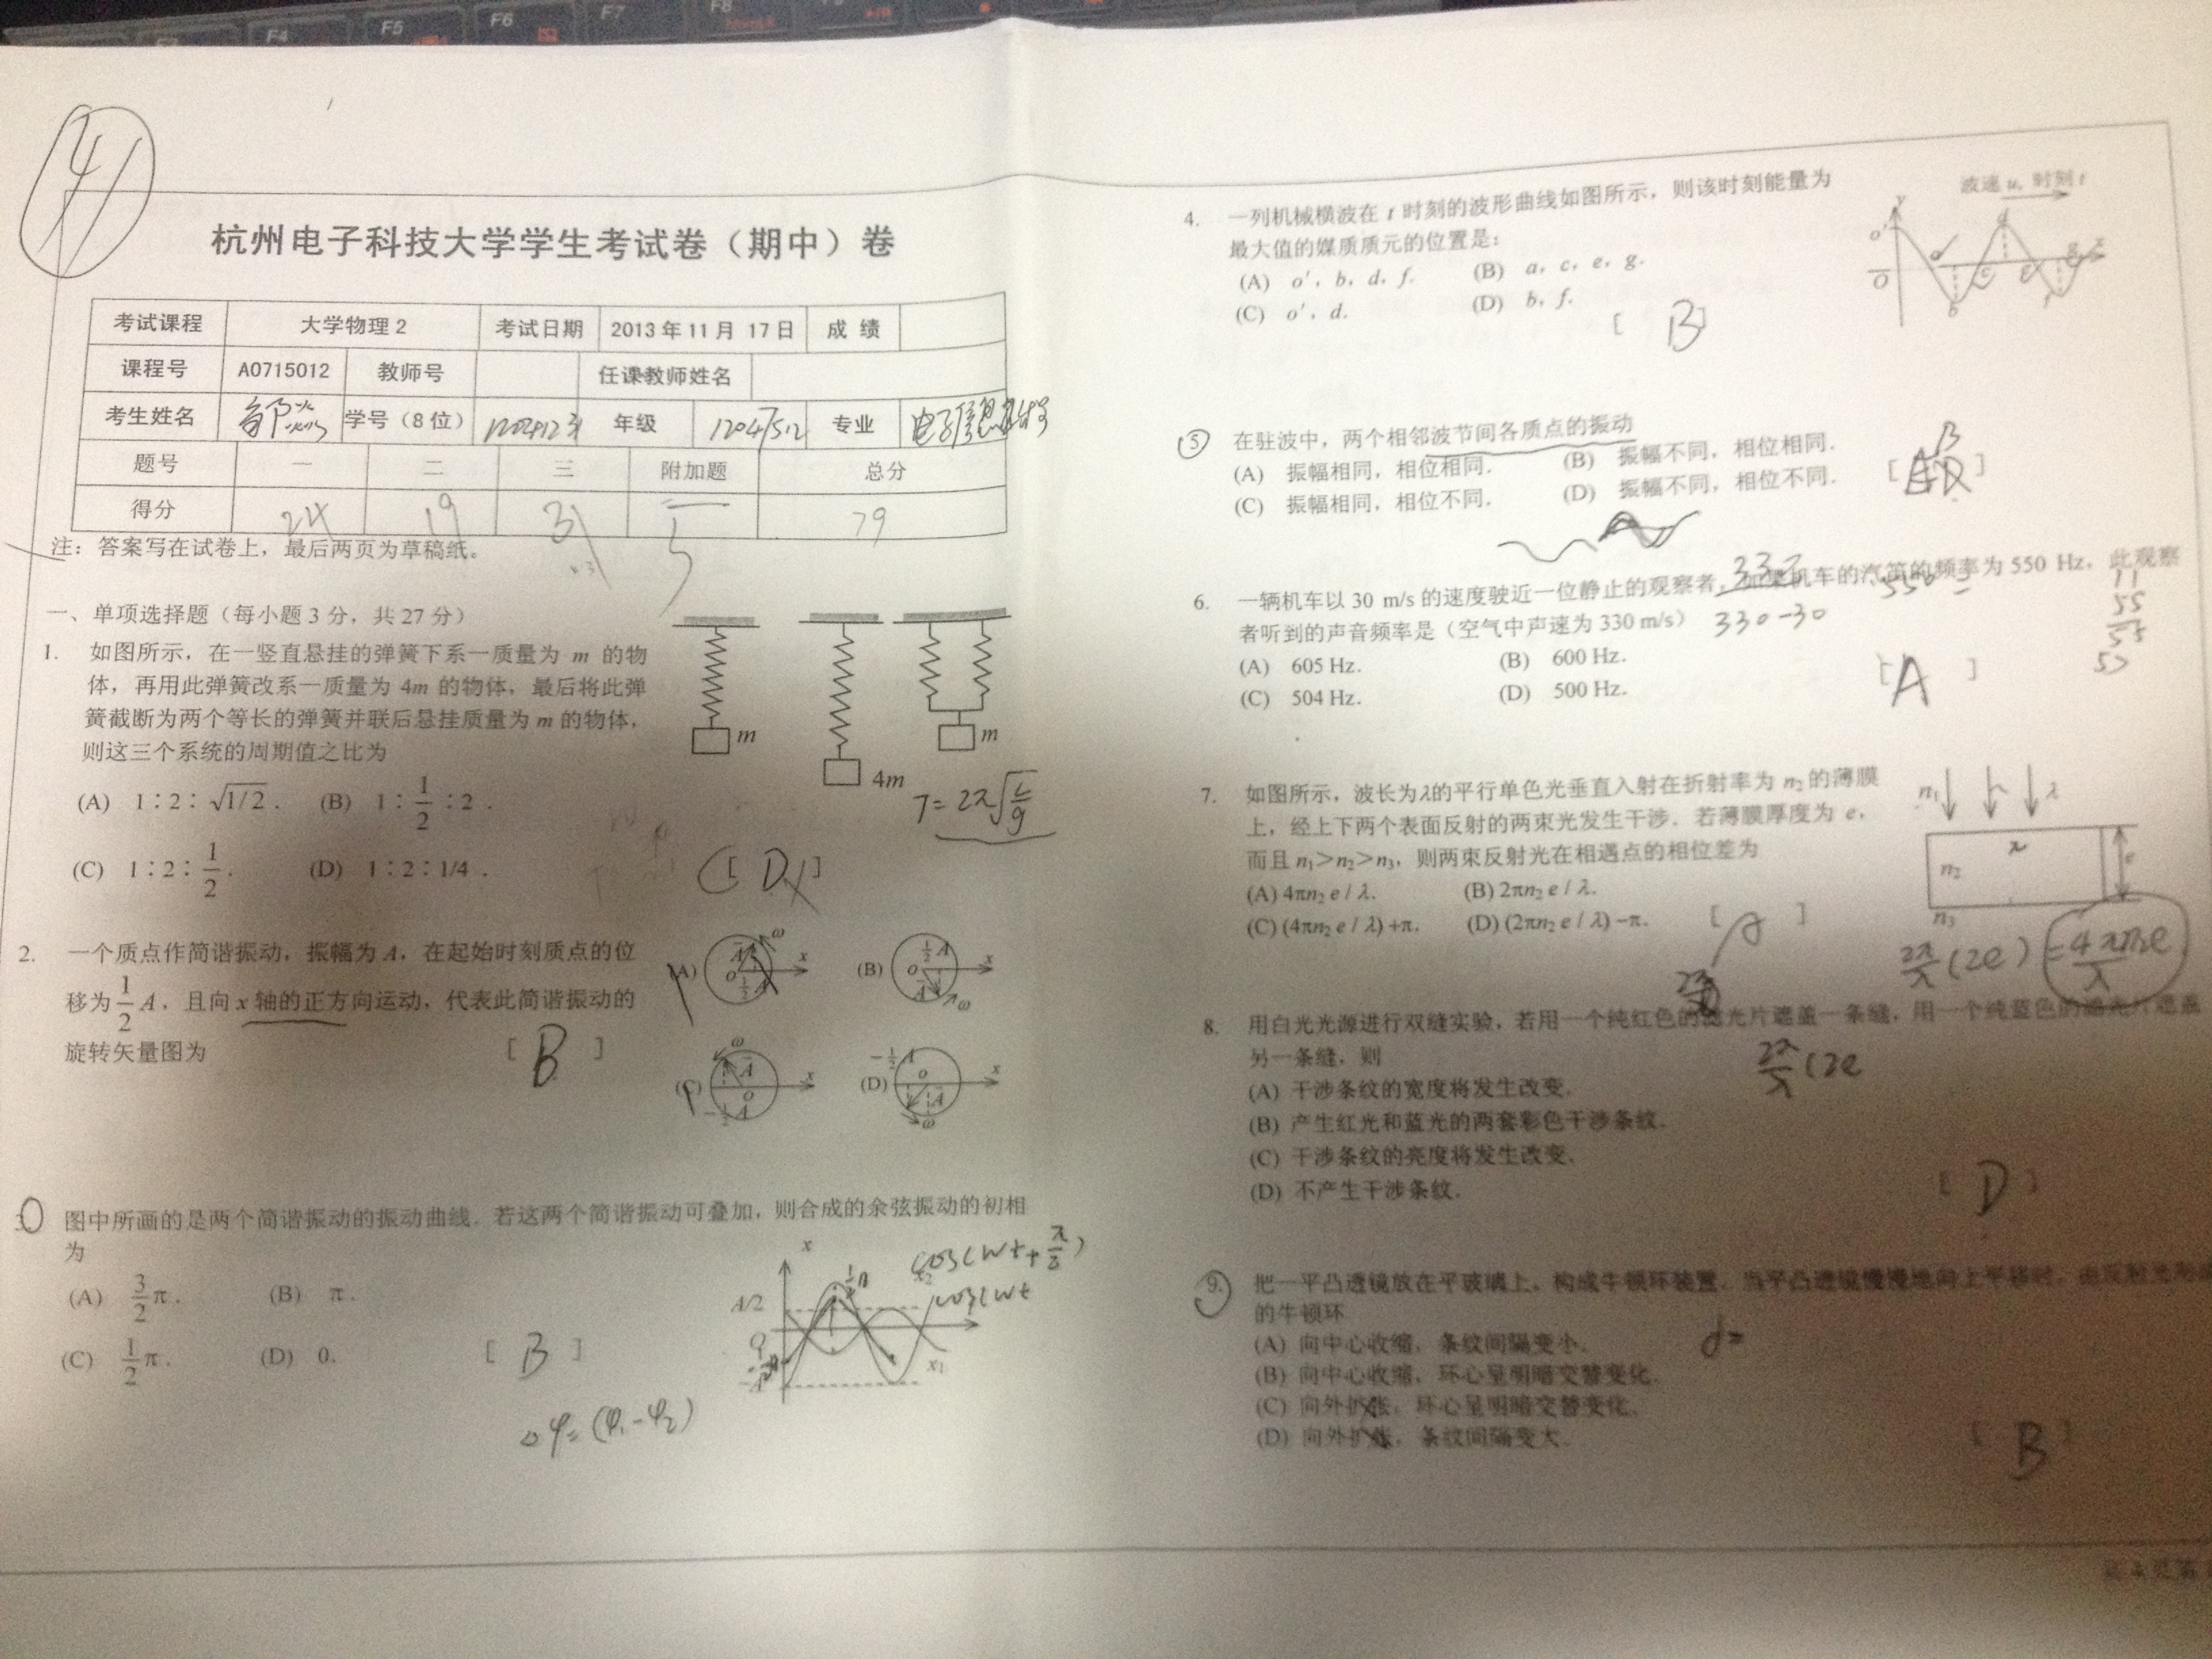 F4 F5 F6 F7 F8
41
杭州电子科技大学学生考试卷（期中）卷
考试课程 大学物理2 考试日期 2013年11月17日 成绩
课程号 A0715012 教师号 任课教师姓名
考生姓名 学号（8位） 年级 专业
题号 一 二 三 附加题 总分
得分 24 19 31 5 79
注：答案写在试卷上，最后两页为草稿纸。
一、单项选择题（每小题3分，共27分）
1. 如图所示，在一竖直悬挂的弹簧下系一质量为 m 的物
体，再用此弹簧改系一质量为 4m 的物体，最后将此弹
簧截断为两个等长的弹簧并联后悬挂质量为 m 的物体，
则这三个系统的周期值之比为
(A) 1∶2∶√1/2． (B) 1∶1/2∶2．
(C) 1∶2∶1/2． (D) 1∶2∶1/4．
[ D ]
m 4m m
T=2π√L/g
2. 一个质点作简谐振动，振幅为 A，在起始时刻质点的位
移为 1/2 A，且向 x 轴的正方向运动，代表此简谐振动的
旋转矢量图为 [ B ]
(A) A ω o 1/2 A x (B) 1/2 A o A ω x
(C) ω A o -1/2 A x (D) -1/2 A o A ω x
3. 图中所画的是两个简谐振动的振动曲线．若这两个简谐振动可叠加，则合成的余弦振动的初相
为
(A) 3/2 π． (B) π．
(C) 1/2 π． (D) 0．
[ B ]
x A/2 O -A x1 x2
cos(wt+π/2)
cos(wt
△φ=(φ1-φ2)
4. 一列机械横波在 t 时刻的波形曲线如图所示，则该时刻能量为
最大值的媒质质元的位置是：
(A) o′，b，d，f． (B) a，c，e，g．
(C) o′，d． (D) b，f．
[ B ]
波速 u，时刻 t
y o′ O a b c d e f g x
5. 在驻波中，两个相邻波节间各质点的振动
(A) 振幅相同，相位相同． (B) 振幅不同，相位相同．
(C) 振幅相同，相位不同． (D) 振幅不同，相位不同．
[ B ]
6. 一辆机车以 30 m/s 的速度驶近一位静止的观察者，如果机车的汽笛的频率为 550 Hz，此观察
者听到的声音频率是（空气中声速为 330 m/s）
(A) 605 Hz． (B) 600 Hz．
(C) 504 Hz． (D) 500 Hz．
[ A ]
330
330-30
550=
11
55
55
7. 如图所示，波长为λ的平行单色光垂直入射在折射率为 n2 的薄膜
上，经上下两个表面反射的两束光发生干涉．若薄膜厚度为 e，
而且 n1>n2>n3，则两束反射光在相遇点的相位差为
(A) 4πn2 e / λ． (B) 2πn2 e / λ．
(C) (4πn2 e / λ) +π． (D) (2πn2 e / λ) −π．
[ A ]
n1 λ n2 e n3
2π/λ (2e) = 4πn2e/λ
8. 用白光光源进行双缝实验，若用一个纯红色的滤光片遮盖一条缝，用一个纯蓝色的滤光片遮盖
另一条缝，则
(A) 干涉条纹的宽度将发生改变．
(B) 产生红光和蓝光的两套彩色干涉条纹．
(C) 干涉条纹的亮度将发生改变．
(D) 不产生干涉条纹．
[ D ]
2π/λ (2e
9. 把一平凸透镜放在平玻璃上，构成牛顿环装置．当平凸透镜慢慢地向上平移时，由反射光形成
的牛顿环
(A) 向中心收缩，条纹间隔变小．
(B) 向中心收缩，环心呈明暗交替变化．
(C) 向外扩张，环心呈明暗交替变化．
(D) 向外扩张，条纹间隔变大．
[ B ]
d=